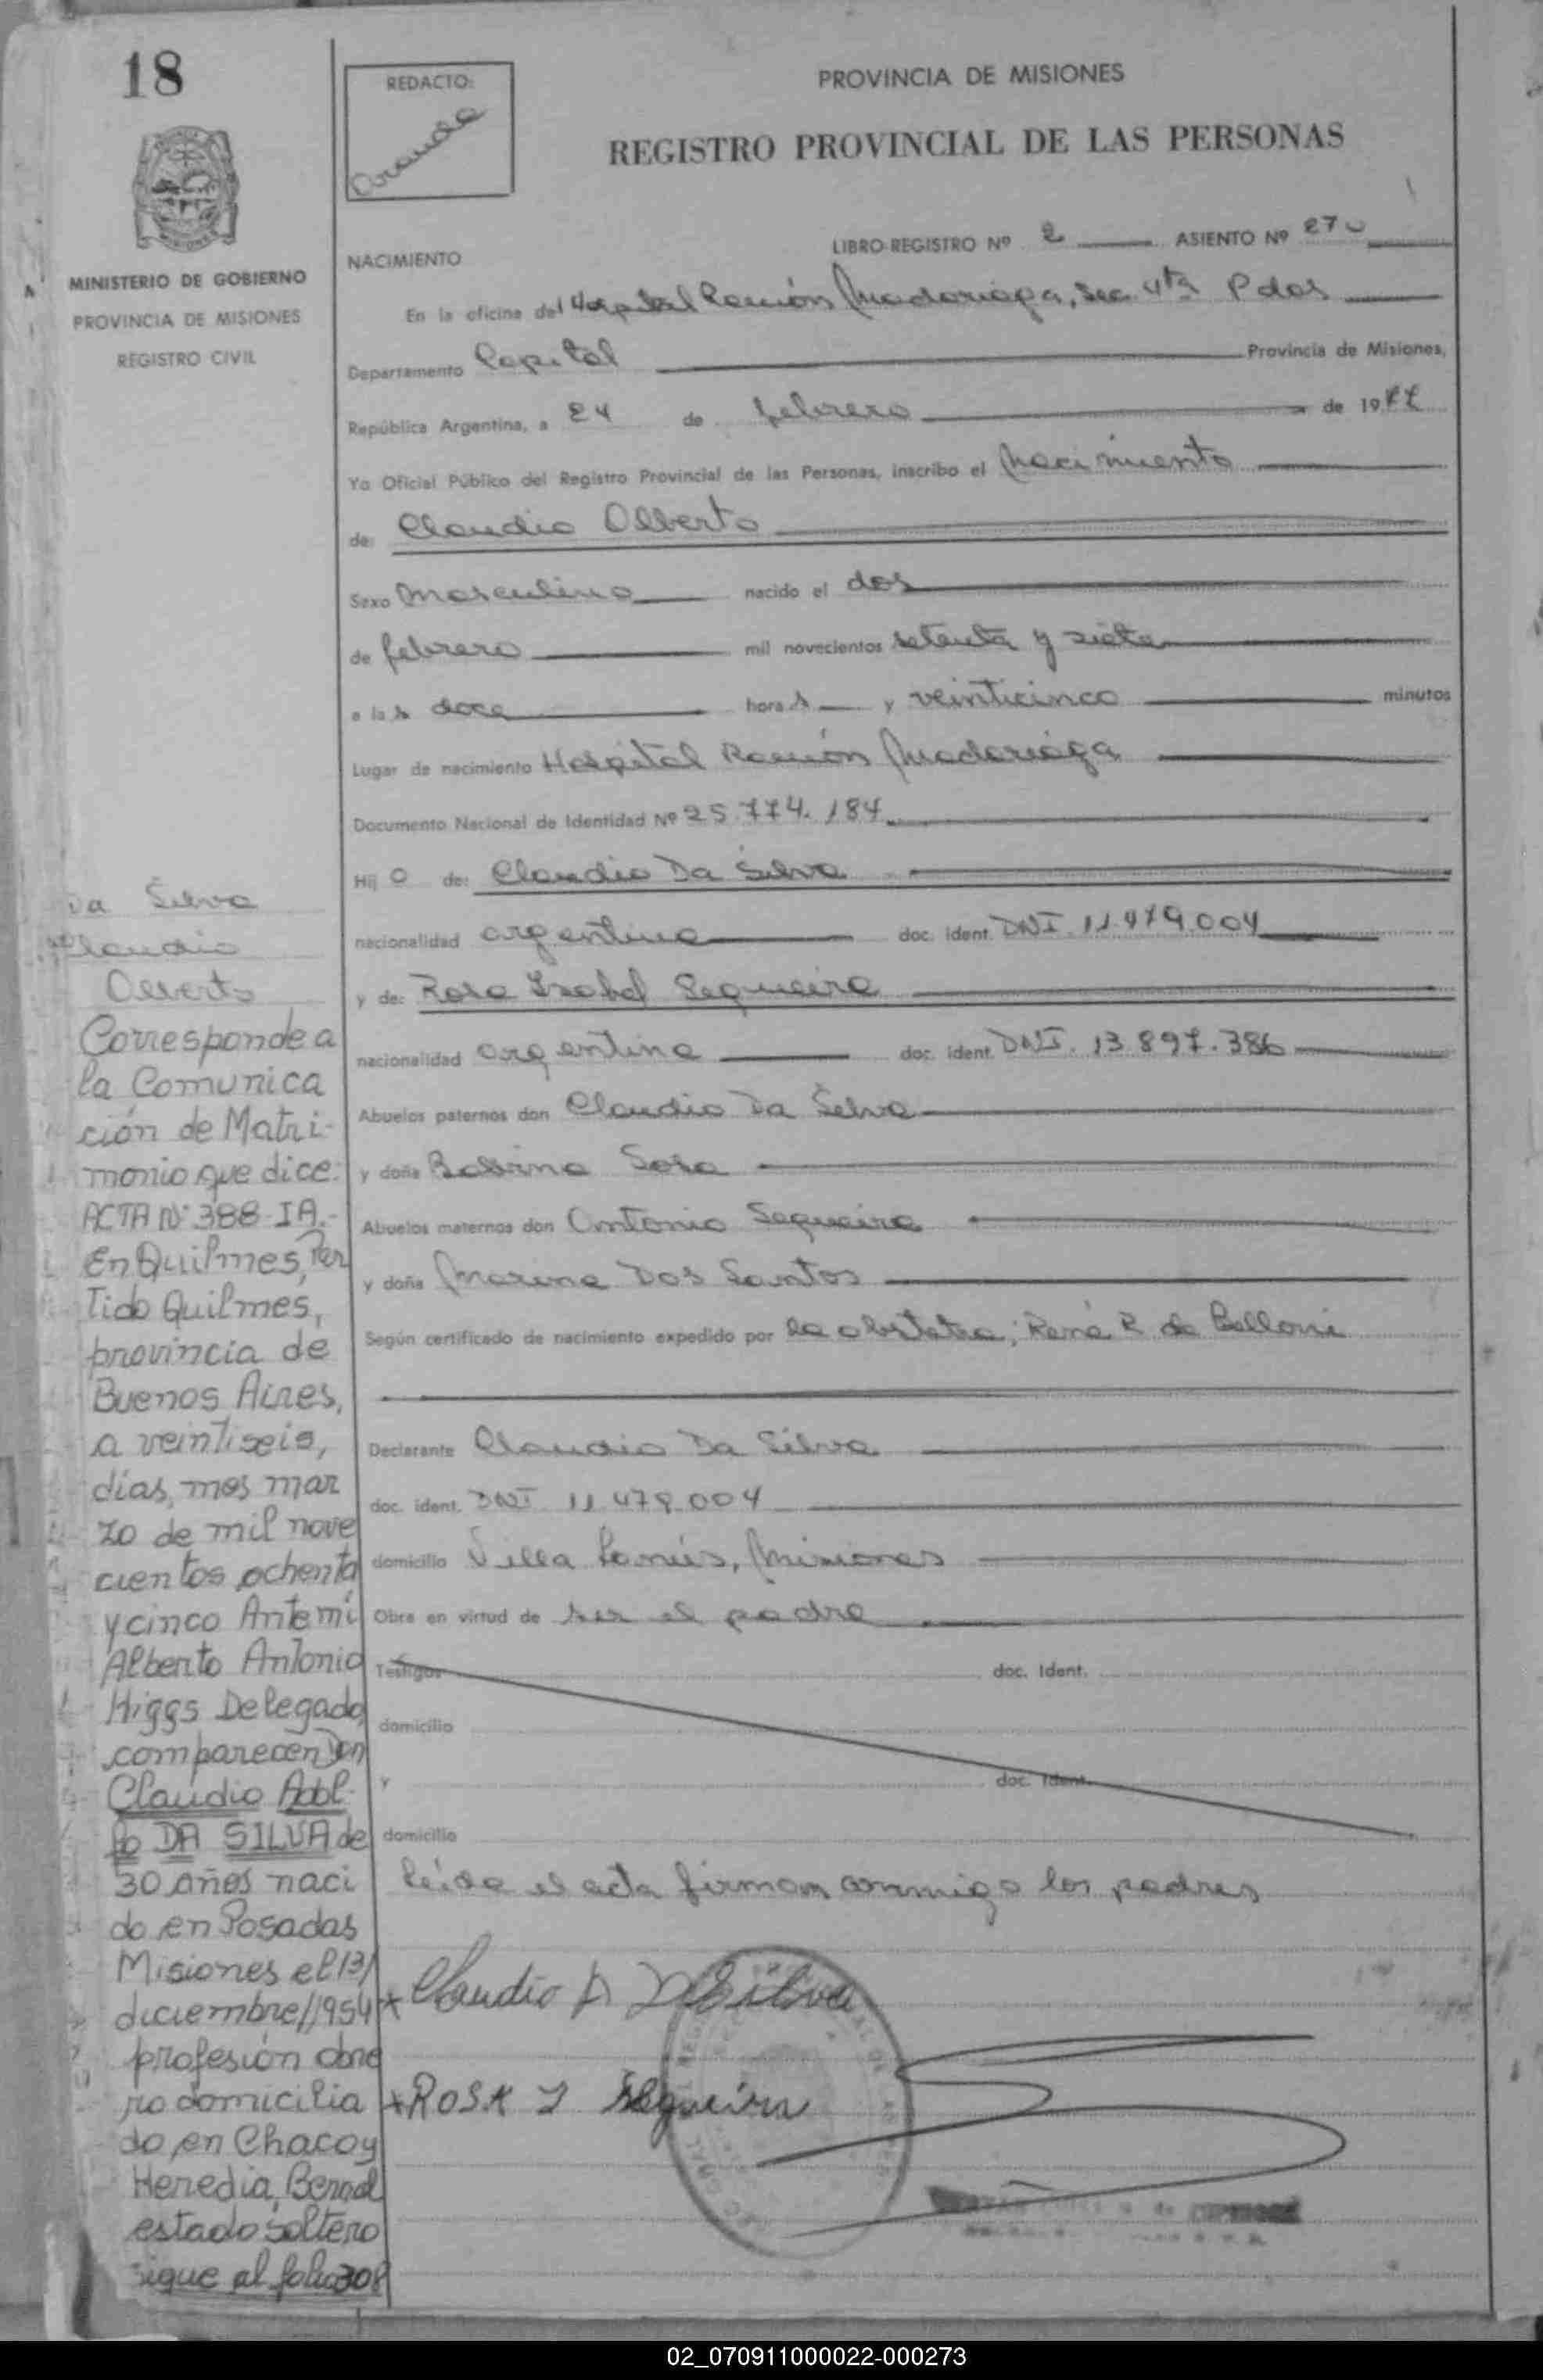 18
MINISTERIO DE GOBIERNO
PROVINCIA DE MISIONES
REGISTRO CIVIL
Da Silva
Claudio
Alberto
Corresponde a
la Comunica
ción de Matri-
monio que dice:
ACTA Nº 388-IA.-
En Quilmes, Par
tido Quilmes,
provincia de
Buenos Aires,
a veintiseis,
días, mes mar
zo de mil nove
cientos ochenta
y cinco Ante mí
Alberto Antonio
Higgs Delegado,
comparecen Don
Claudio Adol-
fo DA SILVA de
30 años naci
do en Posadas
Misiones el 13/
diciembre/1954
profesión obre
ro domicilia
do en Chaco y
Heredia, Bernal
estado soltero
sigue al folio 308
REDACTO:
PROVINCIA DE MISIONES
REGISTRO PROVINCIAL DE LAS PERSONAS
LIBRO-REGISTRO Nº 2 ASIENTO Nº 270
NACIMIENTO
En la oficina del Hospital Ramón Madariaga, Sec. 4ta Pdas
Departamento Capital Provincia de Misiones,
República Argentina, a 24 de febrero de 1977
Yo Oficial Público del Registro Provincial de las Personas, inscribo el nacimiento
de: Claudio Alberto
Sexo masculino nacido el dos
de febrero mil novecientos setenta y siete
a las doce horas y veinticinco minutos
Lugar de nacimiento Hospital Ramón Madariaga
Documento Nacional de Identidad Nº 25.774.184
Hijo de: Claudio Da Silva
nacionalidad argentina doc. ident. DNI. 11.479.004
y de: Rosa Isabel Sequeira
nacionalidad argentina doc. ident. DNI. 13.897.386
Abuelos paternos don Claudio Da Silva
y doña Balvina Sosa
Abuelos maternos don Antonio Sequeira
y doña Marina Dos Santos
Según certificado de nacimiento expedido por la obstetra; René R de Belloni
Declarante Claudio Da Silva
doc. ident. DNI 11.479.004
domicilio Villa Lanús, Misiones
Obra en virtud de ser el padre
Testigos doc. Ident.
domicilio
y doc. Ident.
domicilio
leída el acta firman conmigo los padres
Claudio A Da Silva
ROSA I Sequeira
02_070911000022-000273